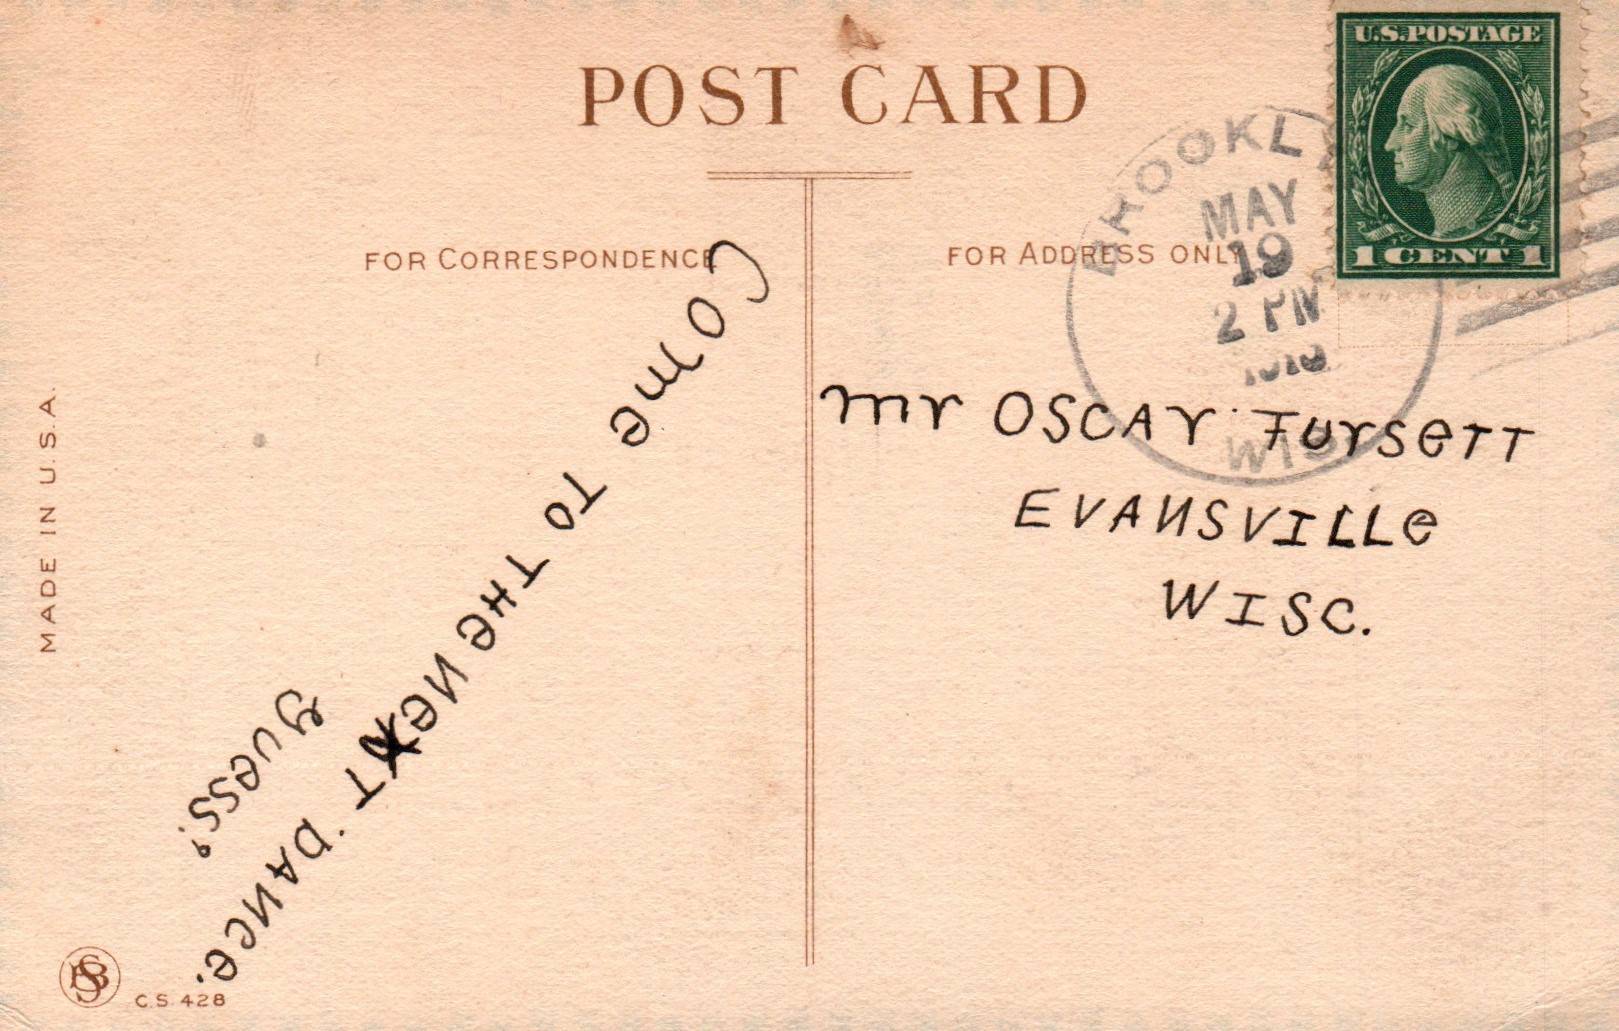 POST CARD
U.S. POSTAGE
1 CENT 1
BROOKLY
MAY
19
2 PM
WIS
FOR CORRESPONDENCE
FOR ADDRESS ONLY
Come TO THe NeXT DANce.
guess?
mr OSCAr Fursett
EVANSVILLe
WISC.
MADE IN U.S.A.
C.S. 428